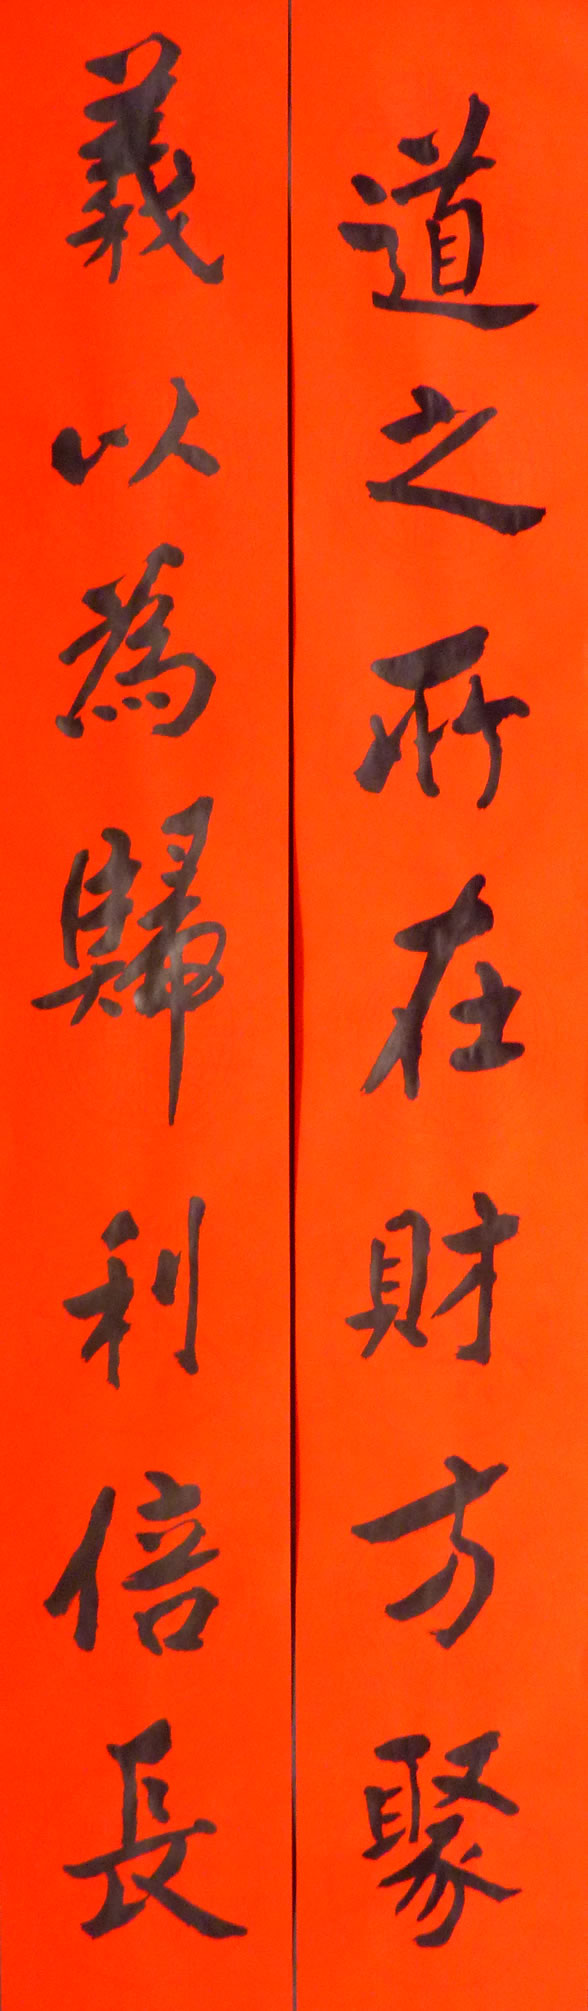 道之所在財方聚
義以為歸利倍長